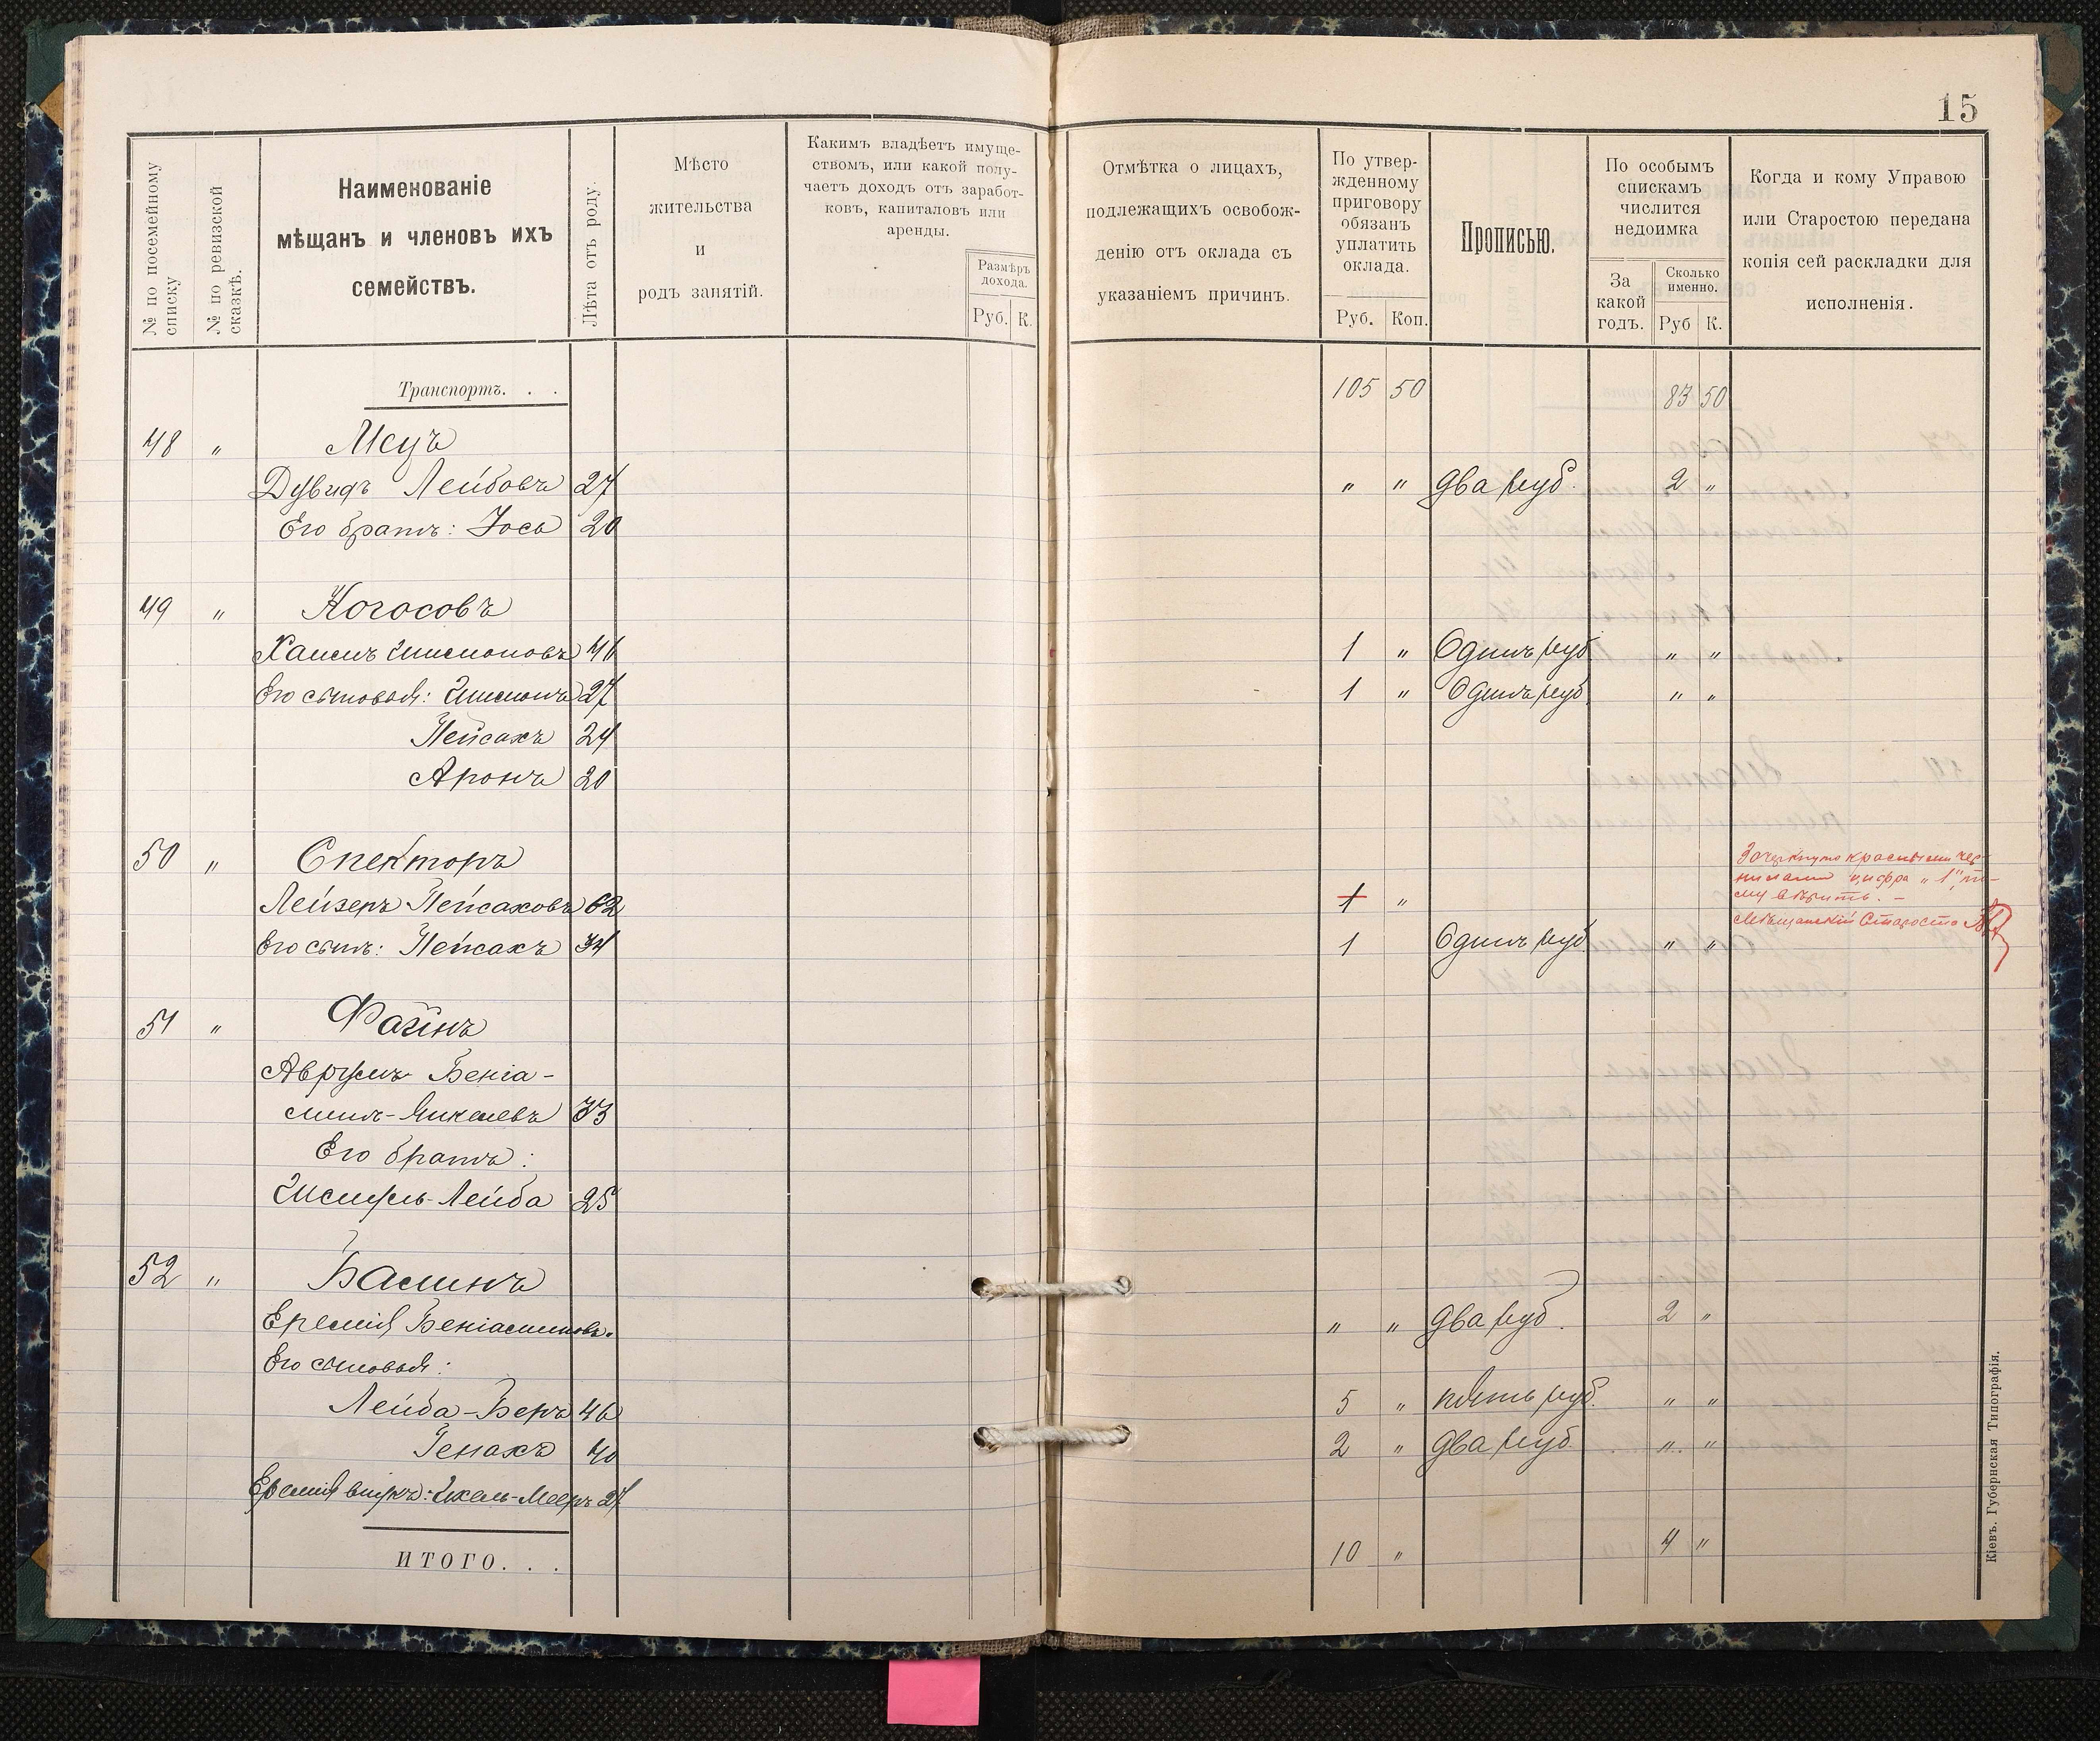 15
№ по посемейному списку
№ по ревизской сказкѣ.
Наименованіе
мѣщанъ и членовъ ихъ
семействъ.
Лѣта отъ роду.
Мѣсто
жительства
и
родъ занятій.
Какимъ владѣетъ имуще-
ствомъ, или какой полу-
чаетъ доходъ отъ заработ-
ковъ, капиталовъ или
аренды.
Размѣръ
дохода.
Руб. К.
Отмѣтка о лицахъ,
подлежащихъ освобож-
денію отъ оклада съ
указаніемъ причинъ.
По утвер-
жденному
приговору
обязанъ
уплатить
оклада.
Руб. Коп.
Прописью.
По особымъ
спискамъ
числится
недоимка
За
какой
годъ.
Сколько
именно.
Руб К.
Когда и кому Управою
или Старостою передана
копія сей раскладки для
исполненія.
Транспортъ. . . 105 50 83 50
48 " Мецъ
Дувидъ Лейбовъ 27 " " два руб. 2 "
Его братъ: Іось 20
49 " Ногосовъ
Хаимъ Шимоновъ 46 1 " Одинъ руб " "
Его сыновья: Шимонъ 27 1 " Одинъ руб. " "
Пейсахъ 24
Аронъ 20
50 " Спекторъ
Лейзеръ Пейсаховъ 62 1 "
Его сынъ: Пейсахъ 34 1 Одинъ руб. " "
Зачеркнуто красными чер-
нилами цифра "1",
му вѣрить. -
Мѣщанскій Староста
51 " Файнъ
Аврумъ Беніа-
минъ-Микелевъ 33
Его братъ:
Шмуль-Лейба 25
52 " Баминъ
Еремія Беніаминовъ. " " два руб. 2 "
Его сыновья:
Лейба-Беръ 46 5 " пять руб. " "
Генахъ 40 2 " два руб. " "
Еремія внукъ: Ихель-Мееръ 27
ИТОГО. . . 10 " 4 "
Кіевъ. Губернская Типографія.